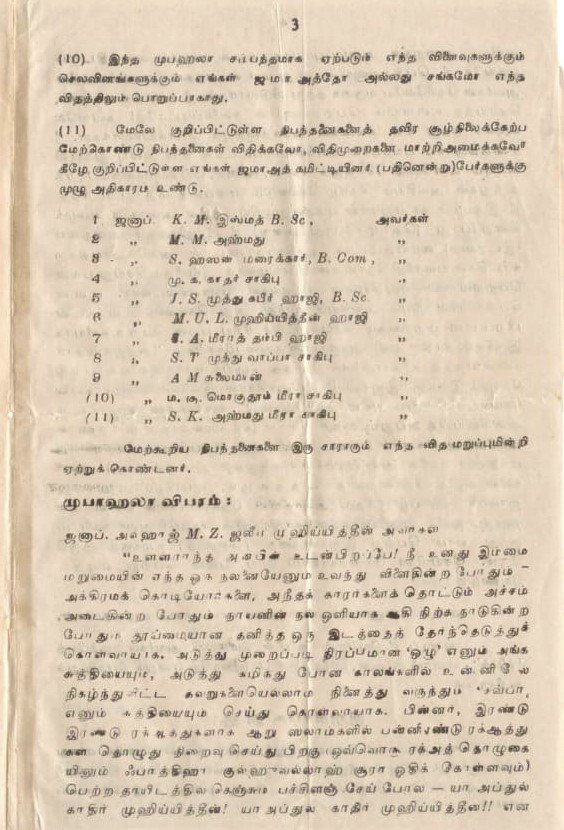 3
(10) இந்த முபஹலா சம்பந்தமாக ஏற்படும் எந்த விளைவுகளுக்கும்
செலவினங்களுக்கும் எங்கள் ஜமாஅத்தோ அல்லது சங்கமோ எந்த
விதத்திலும் பொறுப்பாகாது.
(11) மேலே குறிப்பிட்டுள்ள நிபந்தனைகளைத் தவிர சூழ்நிலைக்கேற்ப
மேற்கொண்டு நிபந்தனைகள் விதிக்கவோ, விதிமுறைகளை மாற்றிஅமைக்கவோ
கீழே குறிப்பிட்டுள்ள எங்கள் ஜமாஅத் கமிட்டியினர் (பதினொன்று)பேர்களுக்கு
முழு அதிகாரம் உண்டு.
1 ஜனாப். K. M. இஸ்மத் B. Sc., அவர்கள்
2 ,, M. M. அஹ்மது ,,
3 ,, S. ஹஸன் மரைக்கார், B. Com., ,,
4 ,, மு. க. காதர் சாகிபு ,,
5 ,, J. S. முத்து கபீர் ஹாஜி, B. Sc ,,
6 ,, M. U. L. முஹிய்யித்தீன் ஹாஜி ,,
7 ,, S. A. மீராத் தம்பி ஹாஜி ,,
8 ,, S. T முத்து வாப்பா சாகிபு ,,
9 ,, A M சுலைமான் ,,
(10) ,, ம. கு. மொகுதூம் மீரா சாகிபு ,,
(11) ,, S. K. அஹ்மது மீரா சாகிபு ,,
மேற்கூறிய நிபந்தனைகளை இரு சாராரும் எந்த வித மறுப்புமின்றி
ஏற்றுக் கொண்டனர்.
முபாஹலா விபரம் :
ஜனாப். அல்ஹாஜ் M. Z. ஜலீல் முஹிய்யித்தீன் அவர்கள்
“உளமார்ந்த அன்பின் உடன்பிறப்பே! நீ உனது இம்மை
மறுமையின் எந்த ஒரு நலனையேனும் உவந்து விளைகின்ற போதும் –
அக்கிரமக் கொடியோர்களை, அநீதக் காரர்களைத் தொட்டும் அச்சம்
அடைகின்ற போதும் நாயனின் நல் ஒளியாக ஆகி நிற்க நாடுகின்ற
போதும் தூய்மையான தனித்த ஒரு இடத்தைத் தேர்ந்தெடுத்துக்
கொள்வாயாக. அடுத்து முறைப்படி திரப்பமான ‘ஒழு’ எனும் அங்க
சுத்தியையும், அடுத்து கழிந்து போன காலங்களில் உன்னிலே
நிகழ்ந்துவிட்ட தவறுகளையெல்லாம் நினைத்து வருந்தும் ‘தவ்பா’
எனும் சுத்தியையும் செய்து கொள்வாயாக. பின்னர், இரண்டு
இரண்டு ரக்அத்துகளாக ஆறு ஸலாமகளில் பன்னிரண்டு ரக்அத்து
கள் தொழுது நிறைவு செய்து பிறகு (ஒவ்வொரு ரக்அத் தொழுகை
யிலும் ஃபாத்திஹா குல்ஹுவல்லாஹ் சூரா ஓதிக் கொள்ளவும்)
பெற்ற தாயிடத்தில் கெஞ்சும் பச்சிளஞ் சேய் போல – யா அப்துல்
காதிர் முஹிய்யித்தீன்! யா அப்துல் காதிர் முஹிய்யித்தீன்!! என